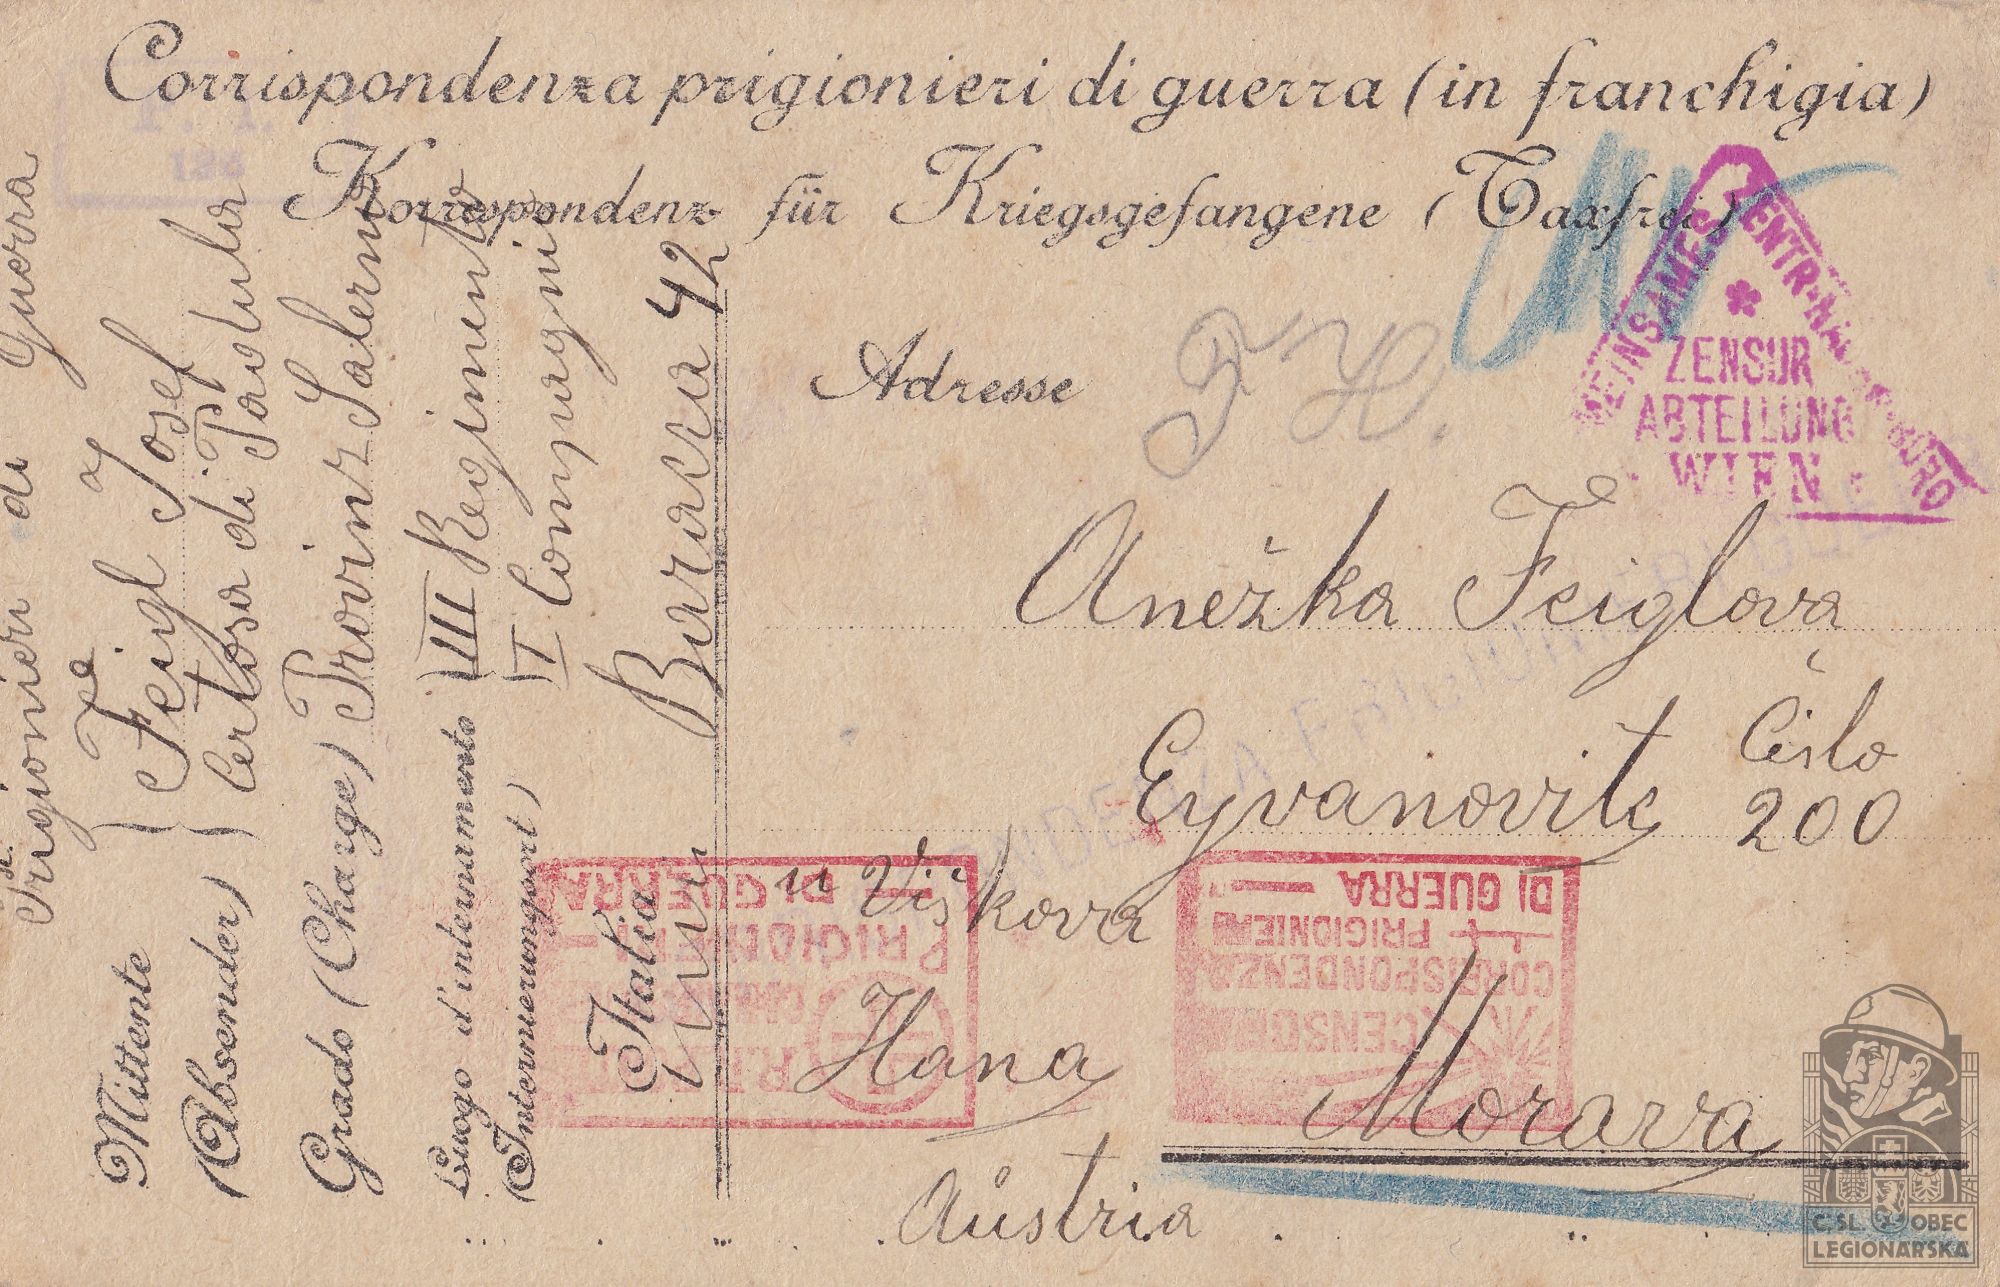 Corrispondenza prigionieri di guerra (in franchigia)
Korrespondenz für Kriegsgefangene (Taxfrei)
Prigionieri di Guerra
Mittente
(Absender)
Feigl Josef
Certosa di Padula
Grado (Charge) Provinz Salerno
Luogo d'internamento
(Internierungsort)
III Regimento
I Compagnia
Italia
Baraca 42
Adresse
GEMEINSAMES ZENTRALNACHWEISEBURO
ZENSUR
ABTEILUNG
WIEN
Anežka Feiglova
Eyvanovitz
Číslo
200
u Viškova
Hana
Morava
Austria
PRIGIONIERI
DI GUERRA
CENSURA
CORRISPONDENZA
PRIGIONIERI
DI GUERRA
ČSL. OBEC
LEGIONÁŘSKÁ